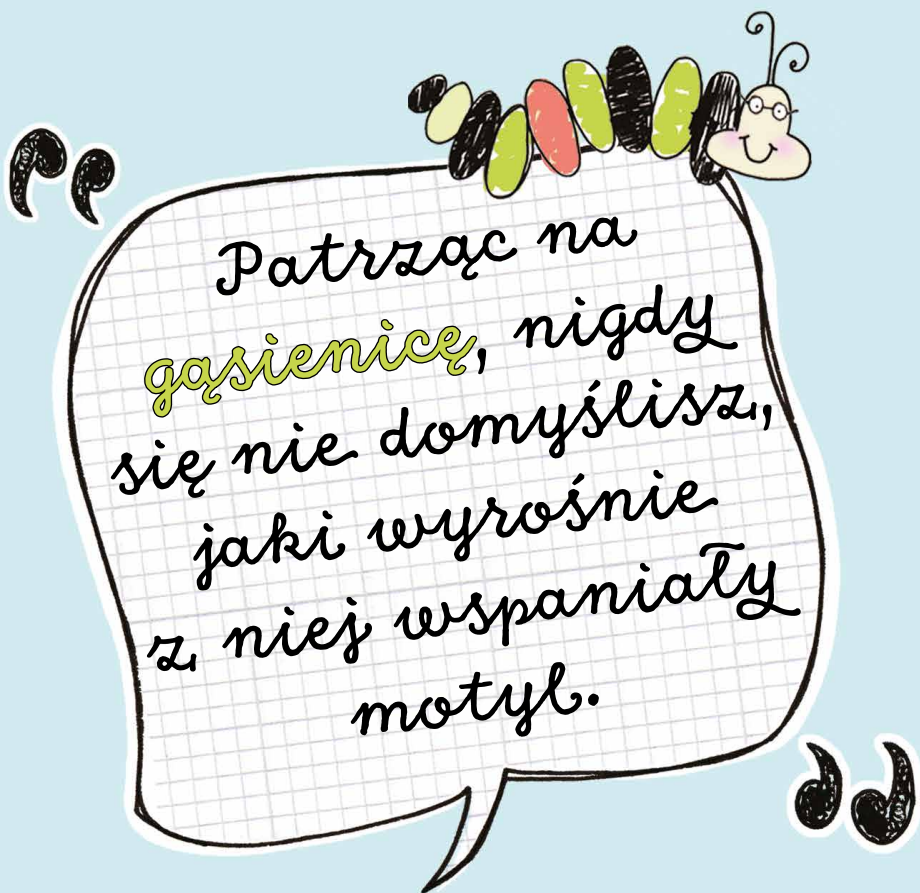 Patrząc na
gąsienicę, nigdy
się nie domyślisz,
jaki wyrośnie
z niej wspaniały
motyl.